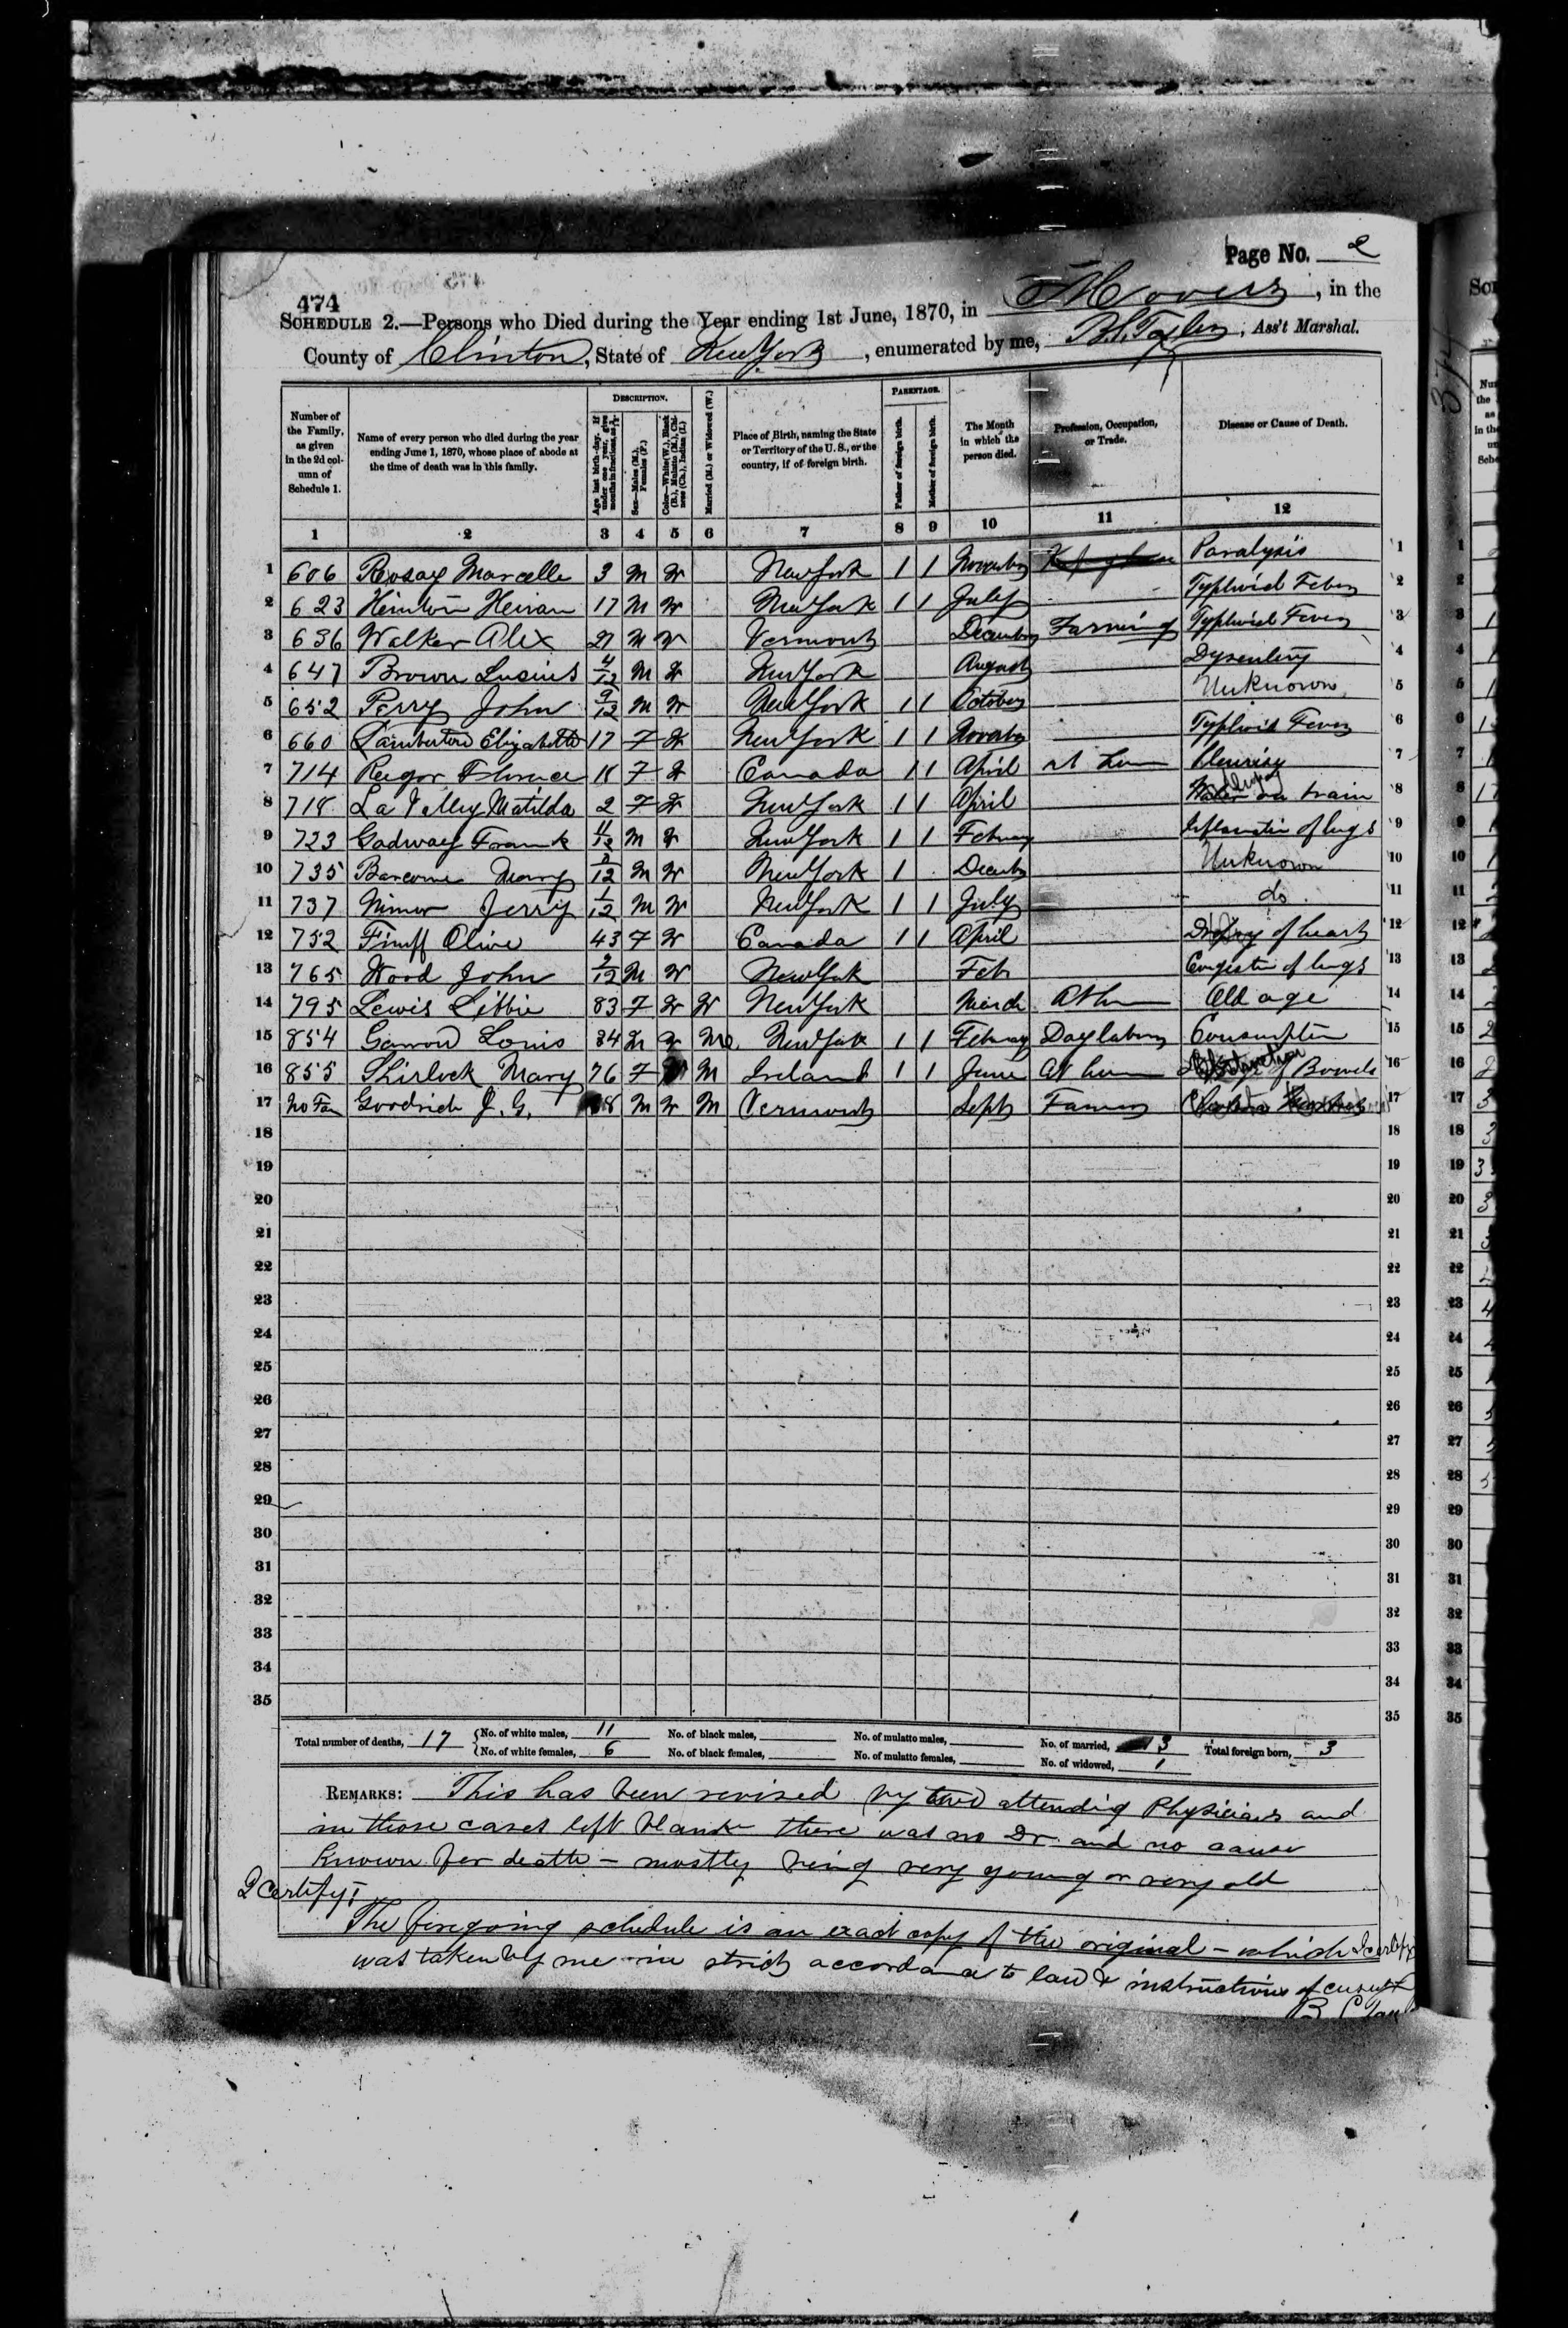 Page No. 2
474
SCHEDULE 2.—Persons who Died during the Year ending 1st June, 1870, in Mooers, in the
County of Clinton, State of New York, enumerated by me, Ass't Marshal.
Number of the Family, as given in the 2d column of Schedule 1.
Name of every person who died during the year ending June 1, 1870, whose place of abode at the time of death was in this family.
DESCRIPTION.
Age last birth-day. If under one year, give months in fractions, as
Sex—Males (M.), Females (F.)
Color—White (W.), Black (B.), Mulatto (Mu.), Chinese (Ch.), Indian (I.)
Married (M.) or Widowed (W.)
Place of Birth, naming the State or Territory of the U. S., or the country, if of foreign birth.
PARENTAGE.
Father of foreign birth.
Mother of foreign birth.
The Month in which the person died.
Profession, Occupation, or Trade.
Disease or Cause of Death.
1 2 3 4 5 6 7 8 9 10 11 12
1 606 Rosay Marcelle 3 M W New York 1 1 November Paralysis 1
2 623 Hiram 17 M W New York 1 1 July Typhoid Fever 2
3 636 Walker Alex 21 M W Vermont December Farming Typhoid Fever 3
4 647 Brown Lusius 4/12 M W New York August Dysentery 4
5 652 Perry John 9/12 M W New York 1 1 October Unknown 5
6 660 Lamberton Elizabeth 17 F W New York 1 1 November Typhoid Fever 6
7 714 Florence 18 F W Canada 1 1 April Pleurisy 7
8 718 La Valley Matilda 2 F W New York 1 1 April brain 8
9 723 Gadway Frank W New York 1 1 February Inflamation of lungs 9
10 735 /12 M W New York 1 December Unknown 10
11 737 Jerry 1/12 M W New York 1 1 July do 11
12 752 Olive 43 F W Canada 1 1 April Dropsy of heart 12
13 765 Wood John /12 M W New York Feb Congestion of lungs 13
14 795 Lewis Libbie 83 F W W New York March At home Old age 14
15 854 Garrow Louis 34 M W M New York 1 1 February Day laborer Consumption 15
16 855 Shirlock Mary 76 F W M Ireland 1 1 June At home Obstruction of Bowels 16
17 No Fam Goodrich J. G. 8 M W M Vermont Sept Farmer Cholera 17
18 18
19 19
20 20
21 21
22 22
23 23
24 24
25 25
26 26
27 27
28 28
29 29
30 30
31 31
32 32
33 33
34 34
35 35
Total number of deaths, 17 No. of white males, 11 No. of black males, No. of mulatto males, No. of married, 3 Total foreign born, 3
No. of white females, 6 No. of black females, No. of mulatto females, No. of widowed, 1
REMARKS: This has been revised by two attending Physicians and
in those cases left blank there was no Dr. and no cause
known for death – mostly being very young or very old
I certify:
The foregoing schedule is an exact copy of the original – which I certify
was taken by me in strict accordance to law & instructions of